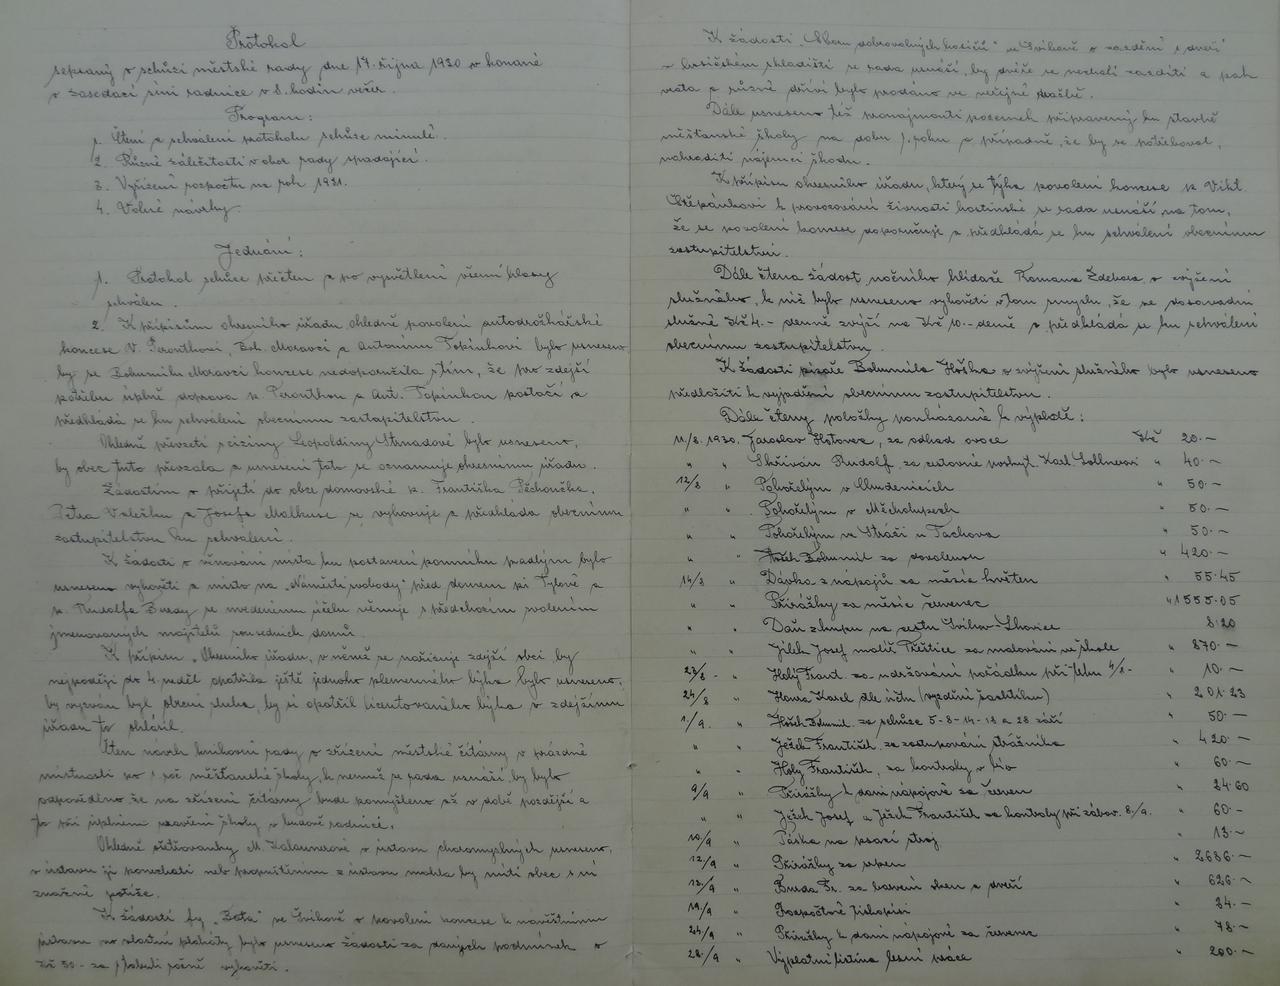 Protokol
sepsaný o schůzi městské rady dne 17. října 1930 v konané
v zasedací síni radnice v 8. hodin večer.
Program:
1. Čtení a schválení protokolu schůze minulé.
2. Různé záležitosti v obor rady spadající.
3. Vyřízení rozpočtu na rok 1931.
4. Volné návrhy.
Jednání:
1. Protokol schůze přečten a po vysvětlení všemi hlasy
schválen.
2. K přípisům okresního úřadu ohledně povolení autodrožkářské
koncese V. Boh. Moravci a Antonínu Topinkovi bylo usneseno
by se Bohumilu Moravci koncese nedoporučila s tím, že pro zdejší
potřebu úplně doprava p. a Ant. Topinkou postačí a
předkládá se ku schválení obecnímu zastupitelstvu.
Ohledně převzetí Leopoldiny Strnadové bylo usneseno,
by obec tuto převzala a usnesení toto se oznamuje okresnímu úřadu.
Žádostem o přijetí do obce domovské p. Františka Pěchoučka,
Petra a Josefa se vyhovuje a předkládá obecnímu
zastupitelstvu ku schválení.
K žádosti o věnování místa ku postavení pomníku padlým bylo
usneseno vyhověti a místo na „Náměstí svobody" před domem pí Tylové a
p. Rudolfa Burdy se uvedenému účelu věnuje s předchozím svolením
jmenovaných majitelů sousedních domů.
K přípisu „Okresního úřadu, v němž se nařizuje zdejší obci by
nejpozději do 4 neděl opatřila ještě jednoho plemenného býka bylo usneseno,
by vyzván byl obecní sluha, by si opatřil licentovaného býka a zdejšímu
úřadu to ohlásil.
Čten návrh knihovní rady o zřízení městské čítárny v prázdné
místnosti po měšťanské školy, k němuž se rada usnáší by bylo
odpověděno že na zřízení čítárny bude pomýšleno až v době pozdější a
to při úplném uzavření školy v budově radnice.
Ohledně ošetřovanky M. v ústavu choromyslných usneseno,
v ústavu ji ponechati neb propuštěním z ústavu mohla by míti obec s ní
značné potíže.
K žádosti fy „Baťa" ve Švihově o povolení koncese k návěštnímu
ústavu na vlastní plakáty bylo usneseno žádosti za daných podmínek a
Kč 50.- za ročně vyhověti.
K žádosti „Sboru dobrovolných hasičů" ve Švihově o zazdění dveří
v hasičském skladišti se rada usnáší, by dveře se nechali zazditi a pak
vrata a různé dříví bylo prodáno ve veřejné dražbě.
Dále usneseno též pronajmouti pozemek připravený ku stavbě
měšťanské školy na dobu 1. roku a případně, že by se potřeboval,
nahraditi nájemci škodu.
K přípisu okresního úřadu, který se týká povolení koncese p. Vikt.
Štěpánkovi k provozování živnosti hostinské se rada usnáší na tom,
že se povolení koncese doporučuje a předkládá se ku schválení obecnímu
zastupitelstvu.
Dále čtena žádost nočního hlídače Romana o zvýšení
služného, k níž bylo usneseno vyhověti v tom smyslu, že se dosavadní
služné Kč 4.- denně zvýší na Kč 10.- denně a předkládá se ku schválení
obecnímu zastupitelstvu.
K žádosti písaře Bohumila o zvýšení služného bylo usneseno
předložiti k vyjádření obecnímu zastupitelstvu.
Dále čteny položky poukázané k výplatě:
11/8. 1930. Jaroslav Hotovec, za odhad ovoce Kč 20.—
„ „ Skřiván Rudolf, za cestovné poskyt. Karl Sollnerovi „ 40.—
12/8 „ Pohořelým v Chudenicích „ 50.—
„ „ Pohořelým v Měcholupech „ 50.—
„ „ Pohořelým ve Stráži u Tachova „ 50.—
„ „ Bohumil za dovolenou „ 420.—
14/8 „ Dávka z nápojů za měsíc květen „ 55.45
„ „ Přirážky za měsíc červenec „ 1555.05
„ „ Daň z kupu na cestu Švihov-Lhovice 8.20
„ „ Jílek Josef malíř Přeštice za malování ve škole „ 870.—
23/8 „ Holý Frant. za udržování pořádku při 4/8- „ 10.—
24/8 „ Karel dle účtu „ 201.23
1/9. „ Bohumil. za schůze 5-8-14-18 a 28 září „ 50.—
„ „ Ježek František za zastupování strážníka „ 420.—
„ „ Holý František, za kontroly v bio „ 60.—
9/9 „ Přirážky k dani nápojové za červen „ 24.60
„ „ Ježek Josef a Ježek František za kontroly při zábav. 8/9. „ 60.—
10/9 „ Páska na psací stroj „ 13.—
12/9 „ Přirážky za srpen „ 2686.—
12/9 „ Burda Fr. za barvení oken a dveří „ 626.—
19/9 „ Rozpočtové tiskopisy „ 24.—
24/9 „ Přirážky k dani nápojové za červenec „ 78.—
28/9 „ Výplatní listina lesní práce „ 200.—